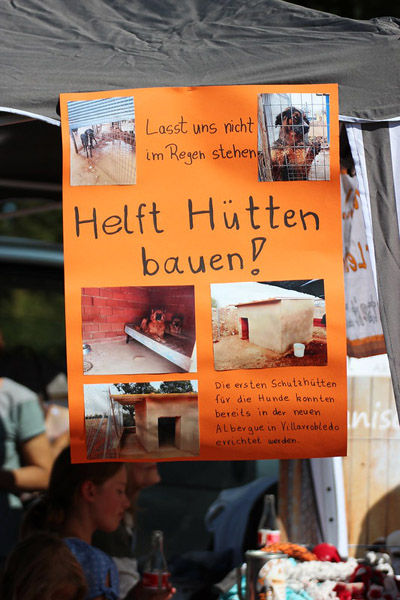 Lasst uns nicht
im Regen stehen
Helft Hütten
bauen!
Die ersten Schutzhütten
für die Hunde konnten
bereits in der neuen
Albergue in Villarrobledo
errichtet werden.